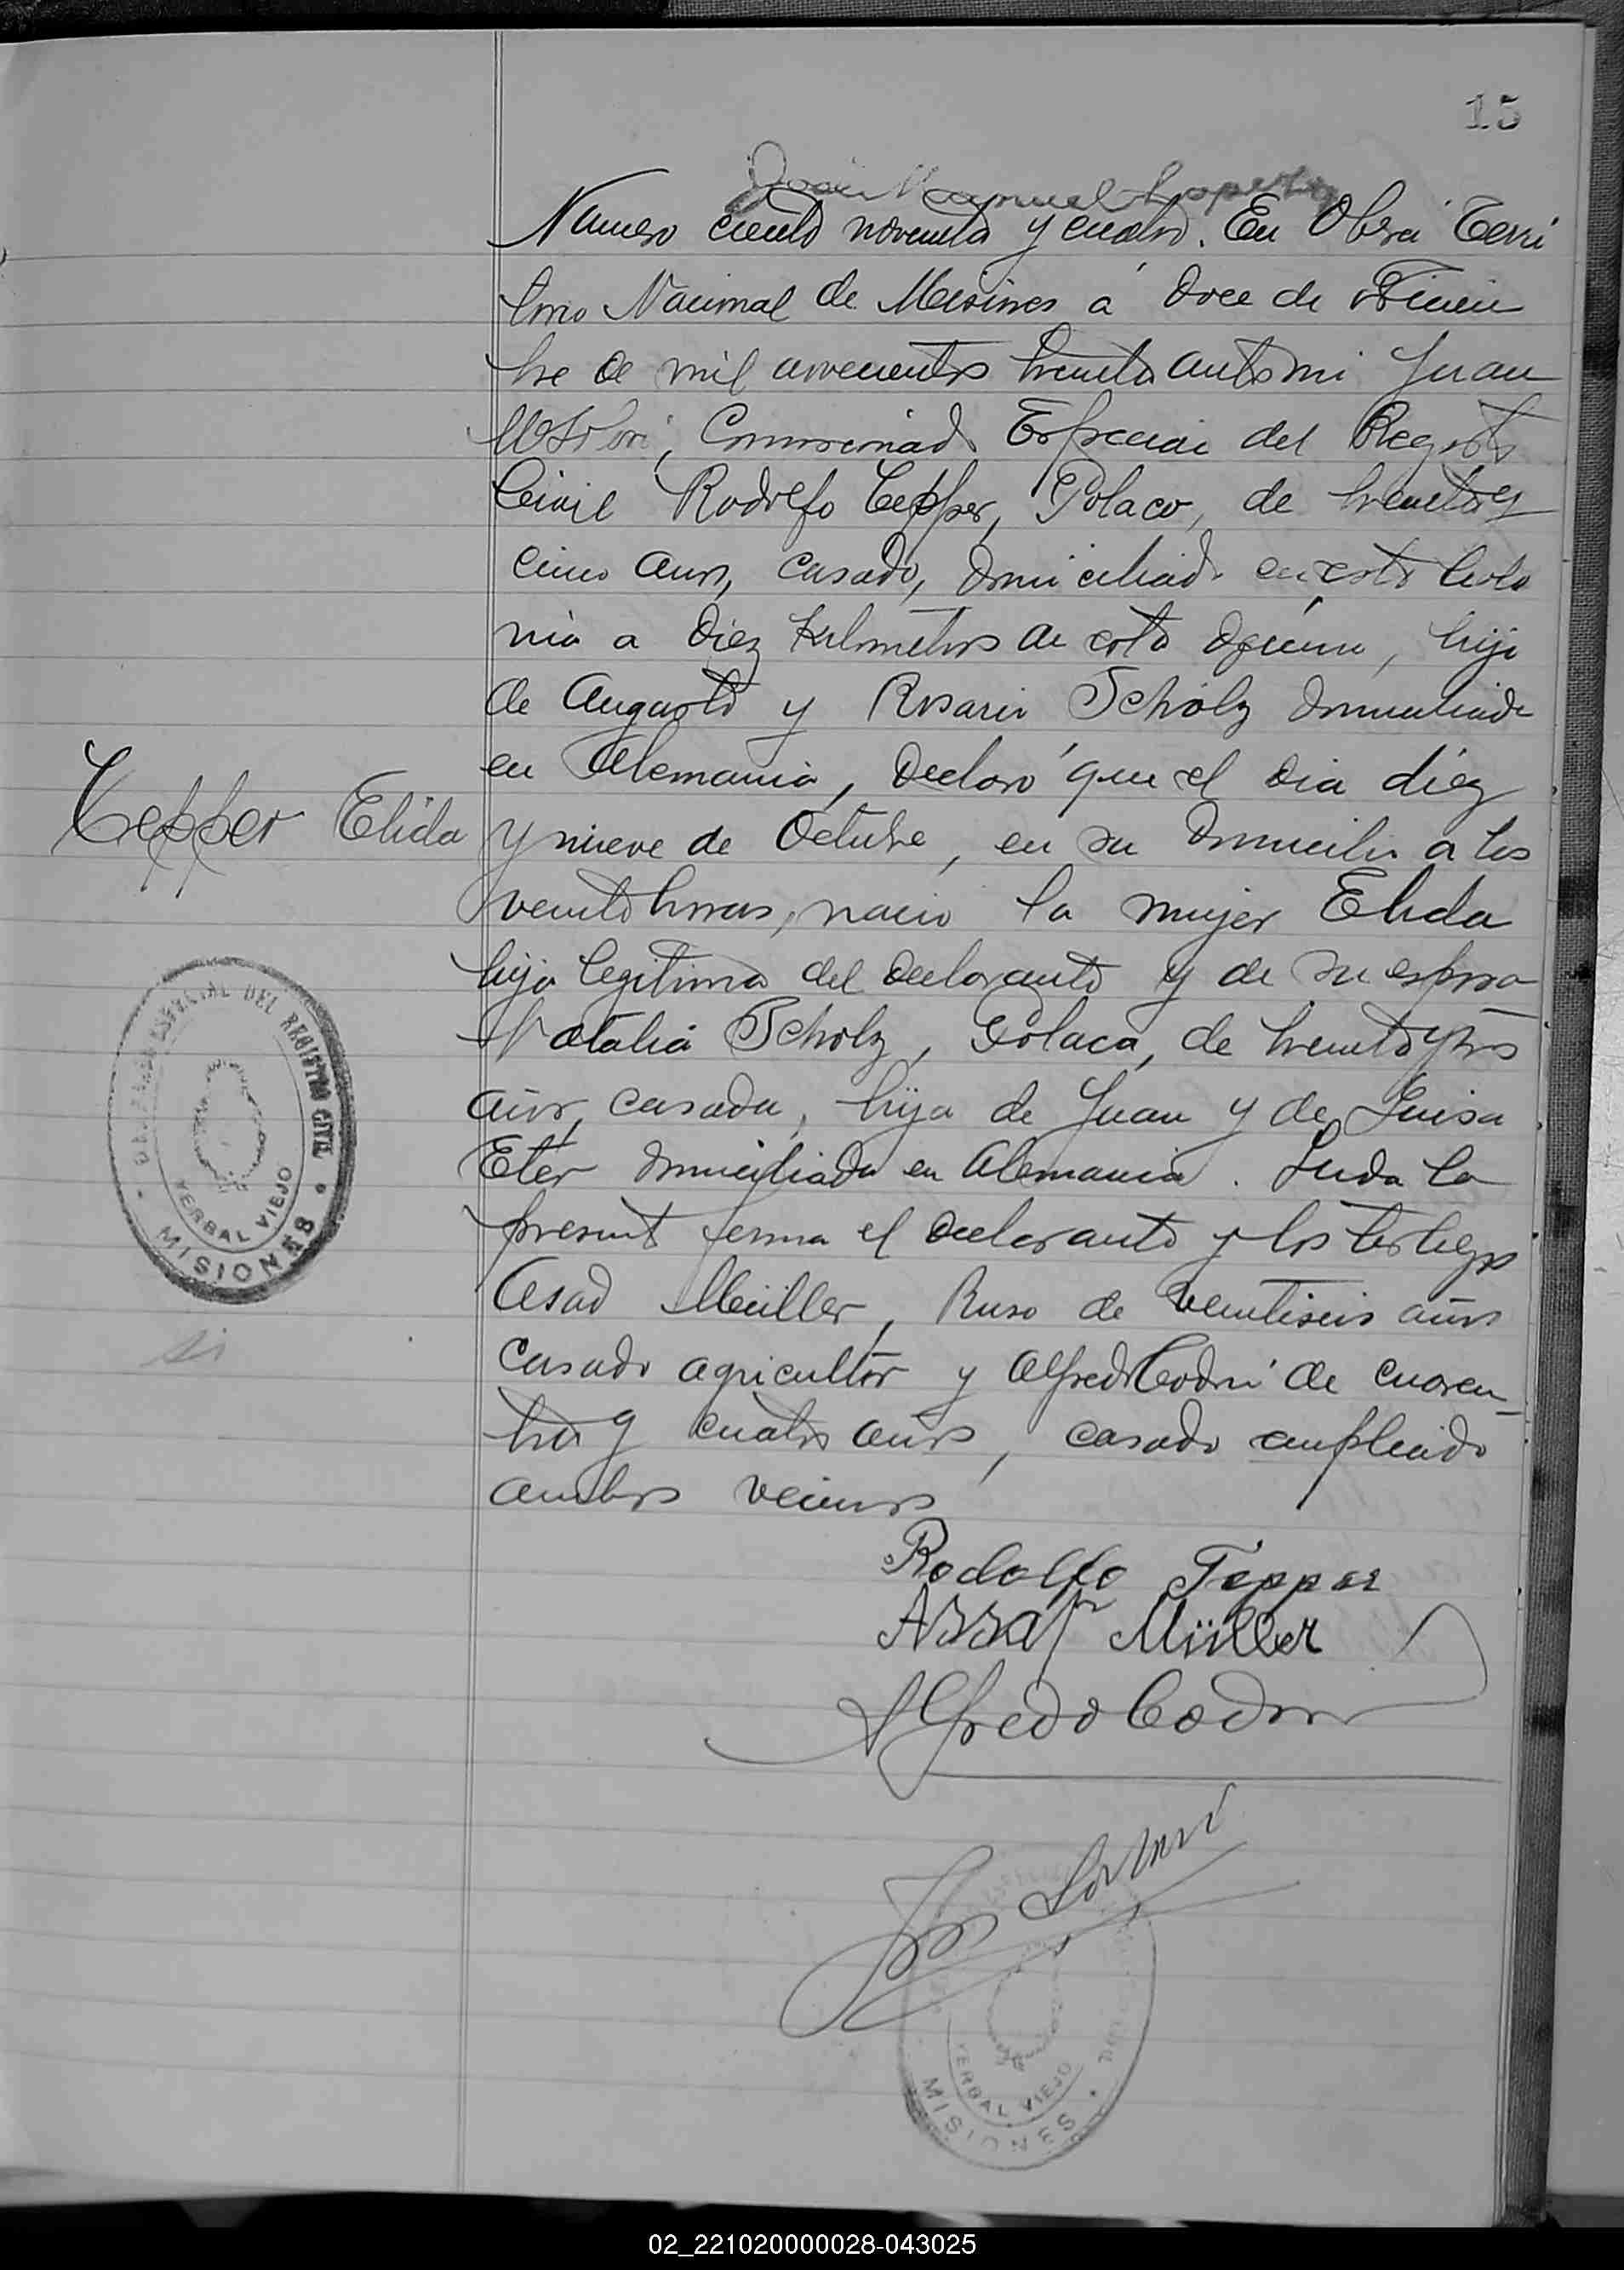 15
Numero ciento noventa y cuatro. En Obera Terri
torio Nacional de Misiones a doce de Diciem
bre de mil novecientos treinta ante mi Juan
Comisionado Especial del Registro
Civil Rodolfo Tepper, Polaco, de treinta y
cinco años, casado, domiciliado en esta Colo
nia a diez Kilometros de esta oficina, hijo
de Augusto y Rosario Scholz domiciliado
en Alemania, declaró que el dia diez
Tepper Elida
y nueve de Octubre, en su domicilio a las
veinte horas, nacio la mujer Elida
hija legitima del declarante y de su esposa
Natalia Scholz, Polaca, de treinta y tres
años, casada, hija de Juan y de Luisa
Eter domiciliada en Alemania. Leida la
present firma el declarante y los testigos
Asad Müller, Ruso de veintiseis años
casado agricultor y Alfredo Codri de cuaren
ta y cuatro años, casado empleado
ambos vecinos
ESPECIAL DEL REGISTRO CIVIL
YERBAL VIEJO
MISIONES
si
Rodolfo Tepper
Assaf Müller
Alfredo Codri
YERBAL VIEJO
MISIONES
02_221020000028-043025